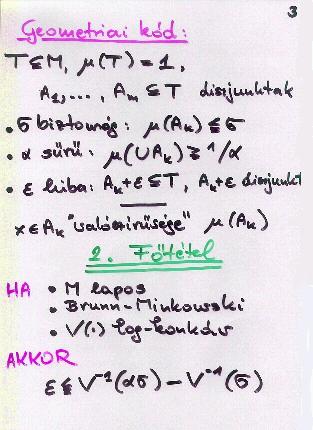 3
Geometriai kód:
T⊆M, μ(T)=1,
A₁,..., Aₘ⊆T diszjunktak
• σ biztonság: μ(Aₖ) ≦ σ
• α sűrű: μ(∪Aₖ) ≧ 1/α
• ε hiba: Aₖ+ε ⊆ T, Aₖ+ε diszjunkt
x∈Aₖ "valószínűsége" μ(Aₖ)
2. Főtétel
HA • M lapos
• Brunn-Minkowski
• V(·) log-konkáv
AKKOR
ε ≦ V⁻¹(ασ) − V⁻¹(σ)